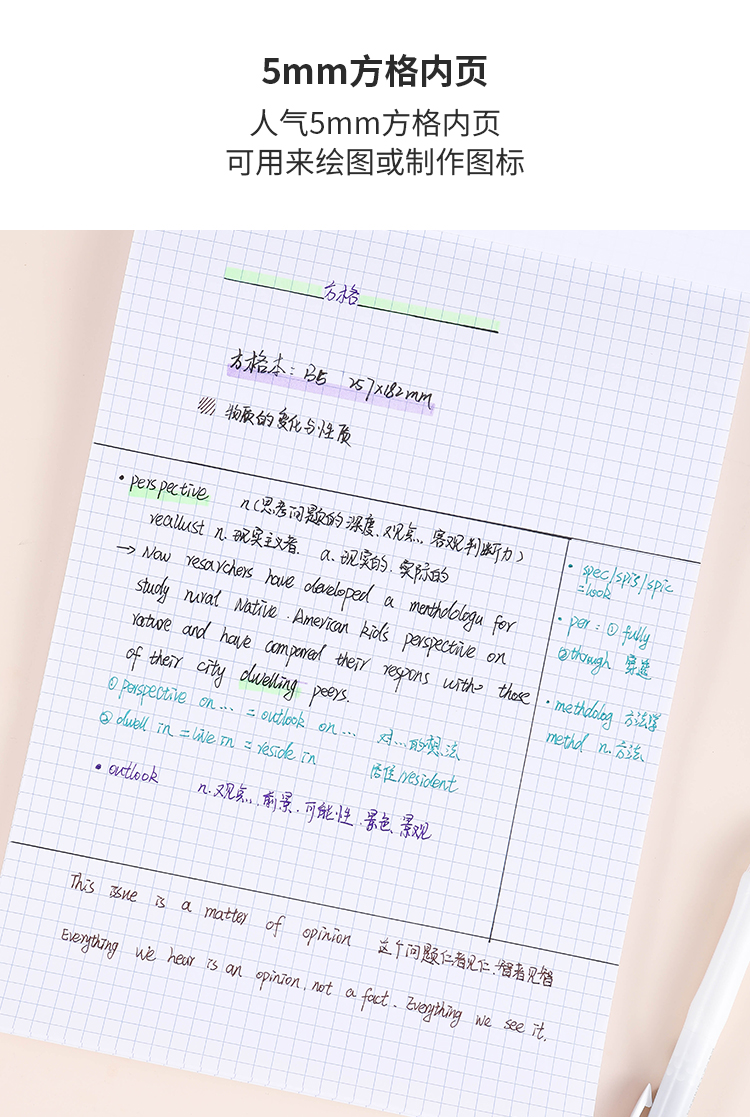 5mm方格内页
人气5mm方格内页
可用来绘图或制作图标
方格
方格本：B5 257×182mm
物质的变化与性质
• perspective n（思考问题的深度、观点、客观判断力）
reallust n. 现实主义者. a. 现实的. 实际的
→ Now resarchers have developed a menthdologu for
study rural Native. American kid's perspective on
rature and have compared their respons with those
of their city dwelling peers.
① perspective on... = outlook on... 对...的想法
② dwell in = live in = reside in 居住/resident
• outlook n. 观点. 前景. 可能性. 景色. 景观
• spec/spis/spic
=look
• per: ① fully
② through 穿透
• methdolog 方法学
methd n. 方法
This issue is a matter of opinion 这个问题仁者见仁.智者见智
Everything we hear is an opinion, not a fact. Everything we see it,